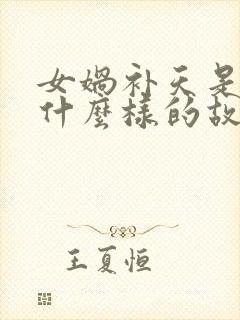 女媧补天是
什麼樣的故
王夏恒